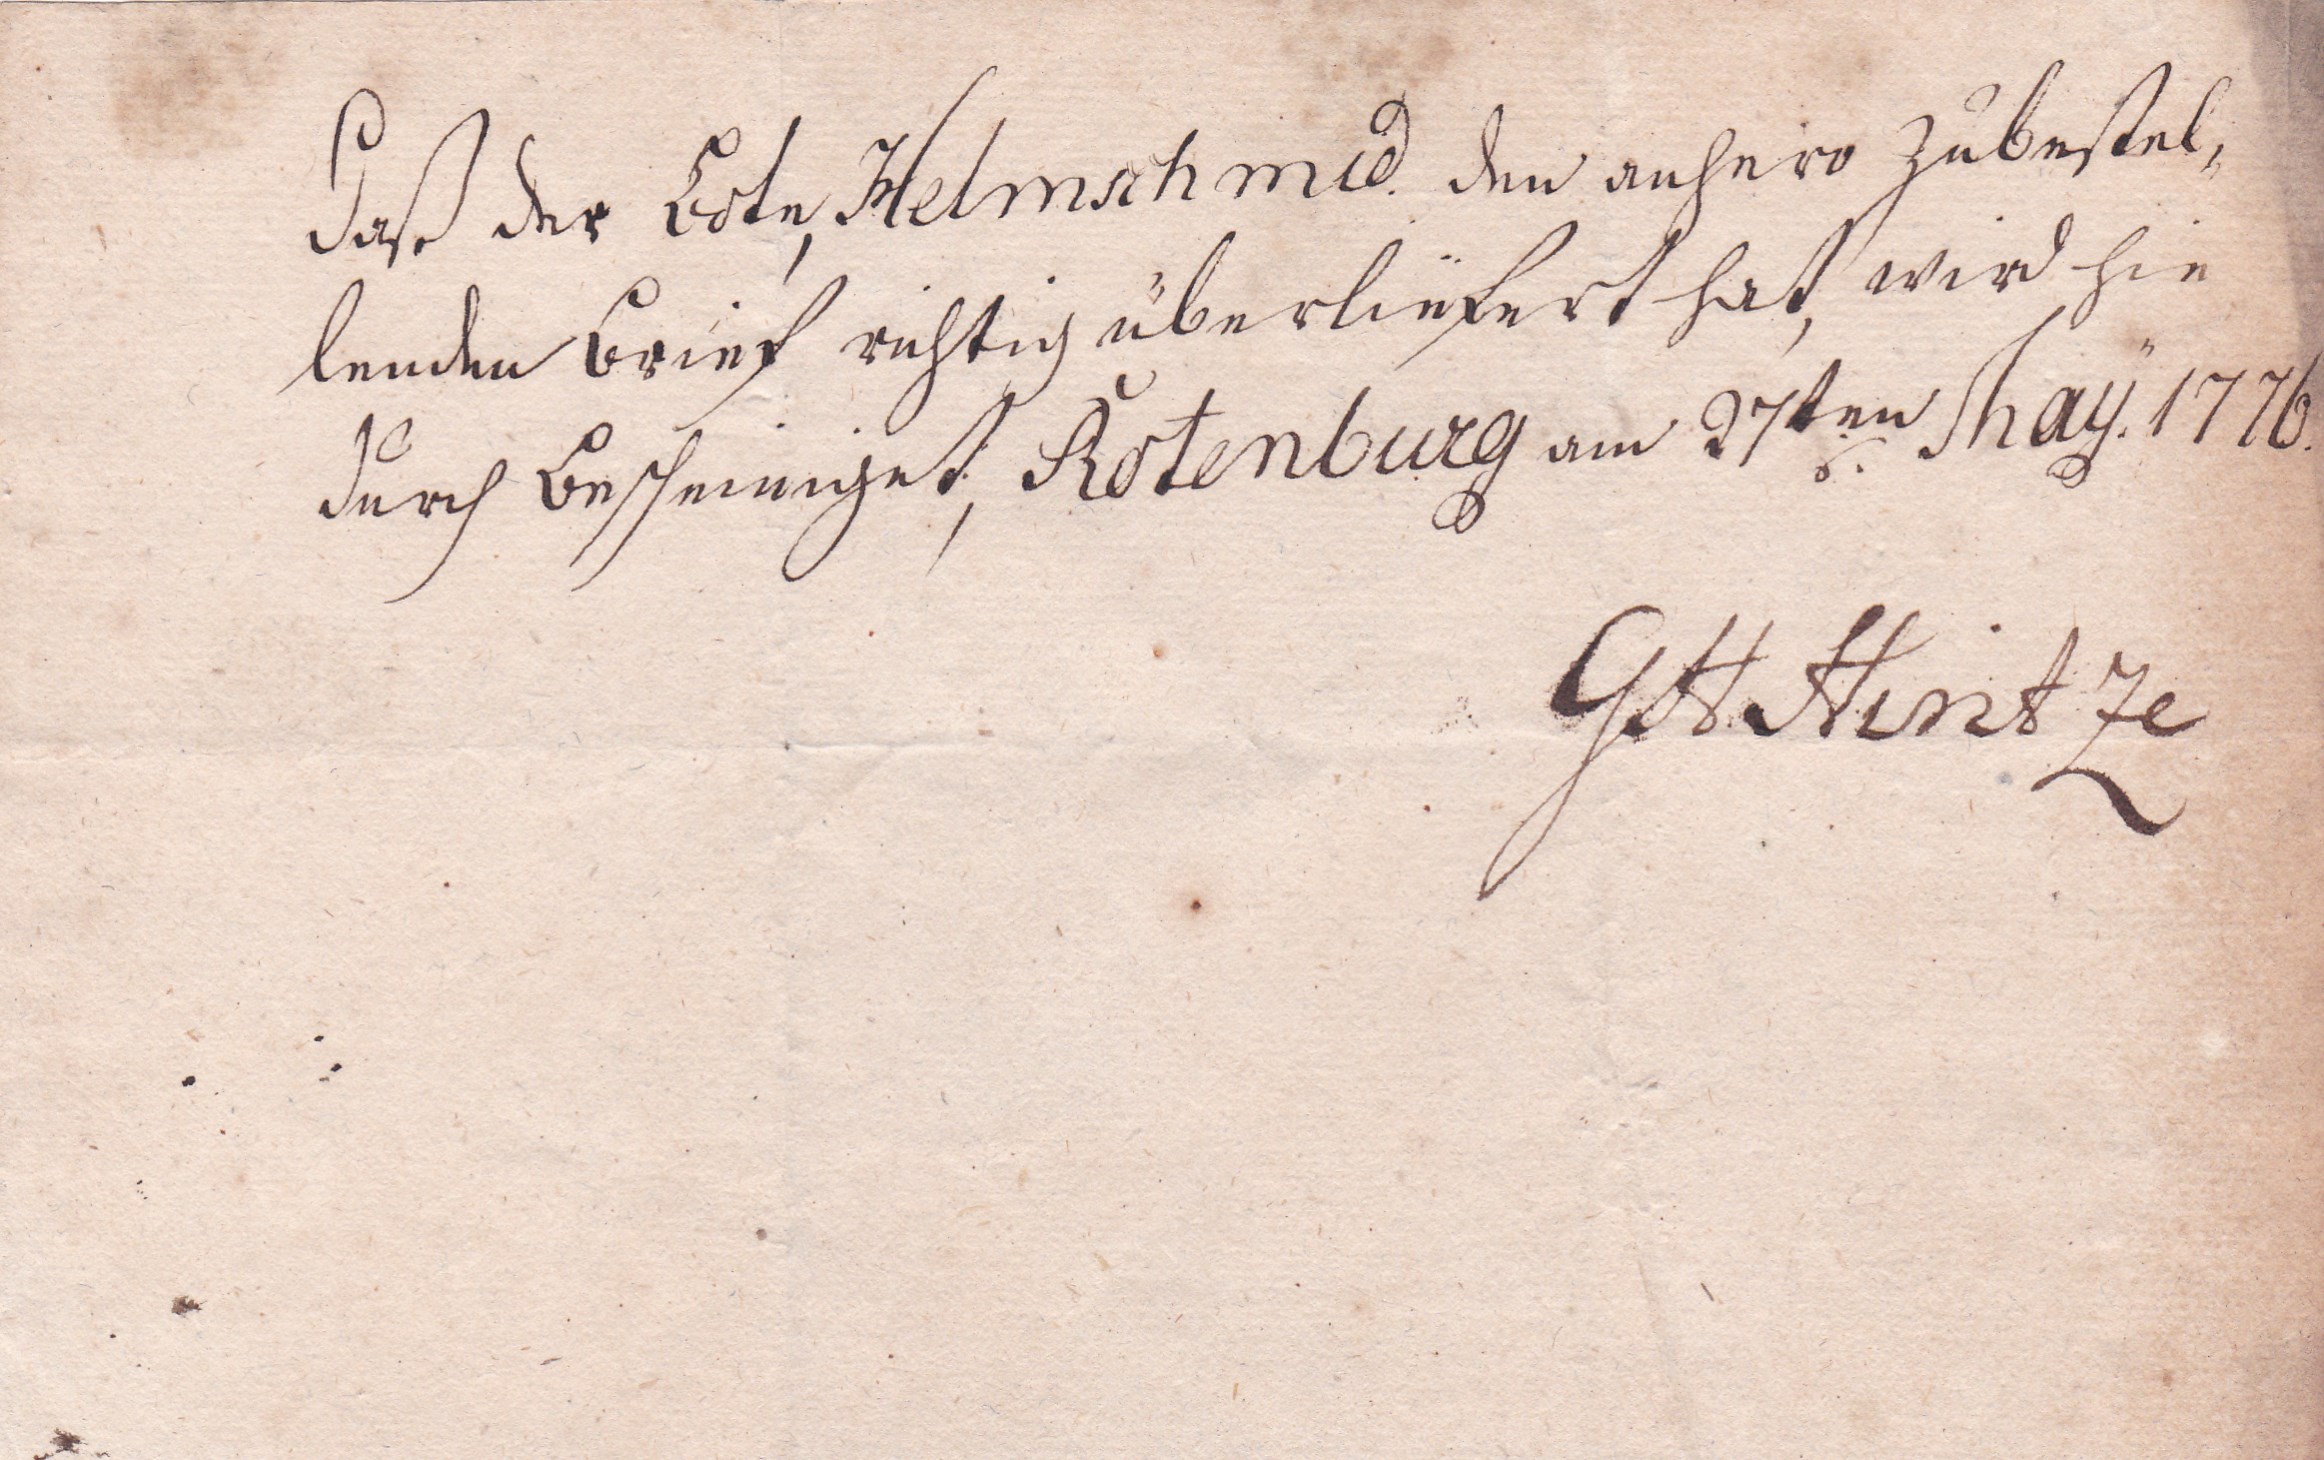 Daß der Bote, Helmschmid. den anhero zubestel,
lenden Brief richtig überliefert hat, wird hie
durch bescheiniget, Rotenburg am 27ten May. 1776.
GH Hintze